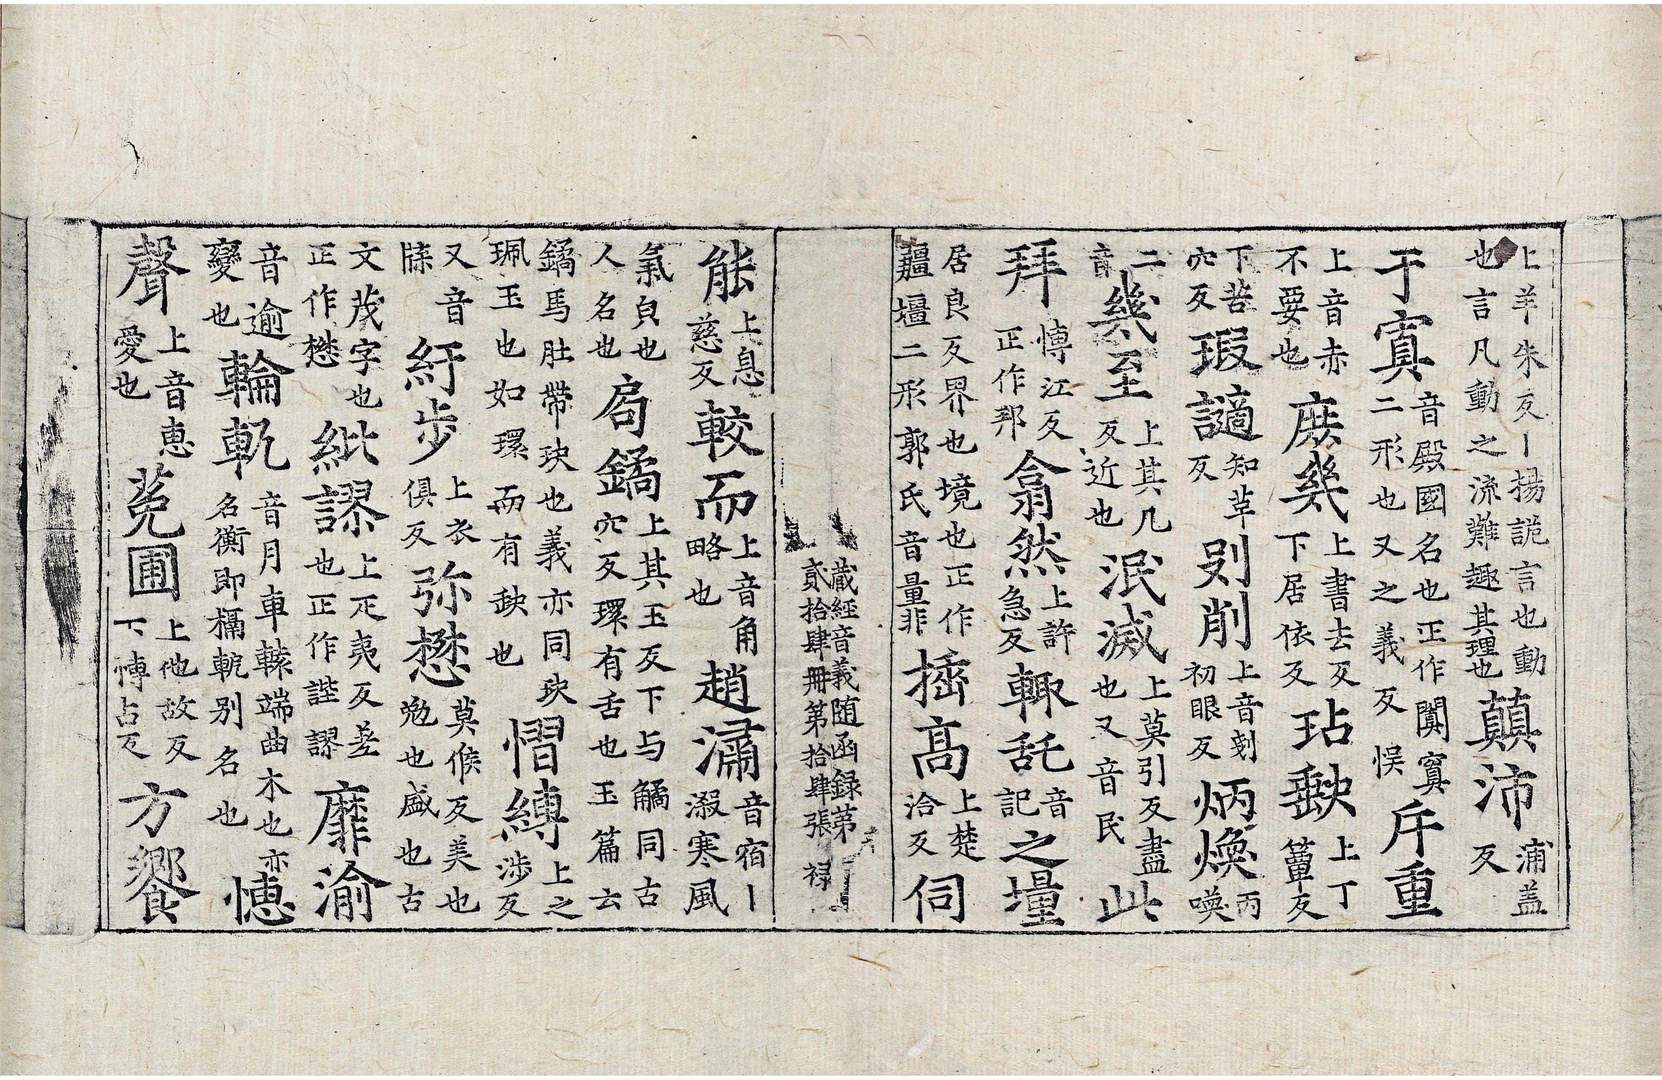 上羊朱反丨揚詭言也動
也言凡動之流難趣其理也 蘋沛 浦盖反
于寘 音殿國名也正作闐寘
二形也又之義反悮 斥重
上音赤
不要也 庶幾 上書去反
下居依反 玷缺 上丁
簟反
下苦
穴反 瑕謫 知革
反 剭削 上音刻
初眼反 炳煥 丙
喚
二
音 幾至 上其几
反近也 泯滅 上莫引反盡
也又音民 此
拜 慱江反
正作邦 翕然 上許
急反 輙 音
記 之壃
居良反界也境也正作
疆壃二形郭氏音量非 插髙 上楚
洽反 伺
藏經音義随函録第
貳拾肆冊第拾肆張 禄
能 上息
慈反 較而 上音角
略也 趙潚 音宿丨
溵寒風
氣皃也
人名也 觿 上其玉反下与觿同古
穴反環有舌也玉篇云
鐍馬肚帶玦也義亦同玦
珮玉也如環而有缺也 慴縛 上之
涉反
又音
牒 紆步 上衣
俱反 弥懋 莫候反美也
勉也盛也古
文茂字也
正作懋 紕謬 上疋夷反差
也正作誰謬 靡渝
音逾
變也 輪軏 音月車轅端曲木也亦
名衡即槅軏别名也 憓
聲 上音惠
愛也 菟圃 上他故反
下慱古反 方饗